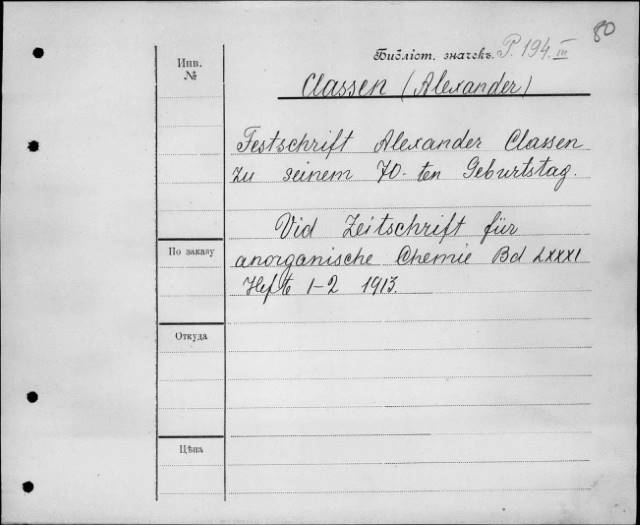 80
Инв. №
Библіот. значекъ. P. 194. III
Classen (Alexander)
Festschrift Alexander Classen
zu seinem 70-ten Geburtstag.
Vid Zeitschrift für
anorganische Chemie Bd LXXXI
Hefte 1-2 1913.
По заказу
Откуда
Цѣна